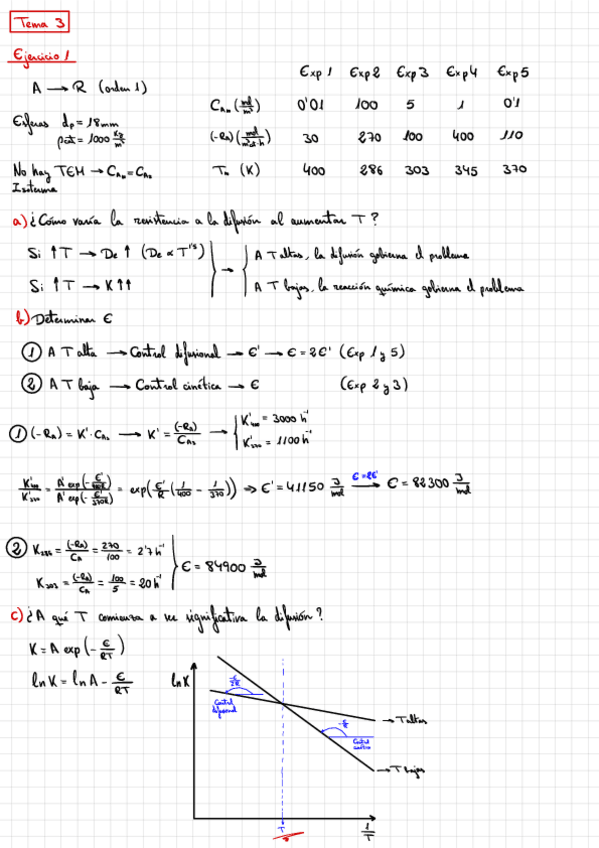 Tema 3
Ejercicio 1
A → R (orden 1)
Exp 1 Exp 2 Exp 3 Exp 4 Exp 5
C_A∞ (mol/m³) 0'01 100 5 1 0'1
Esferas dp = 18mm
ρcat = 1000 kg/m³
(-RA) 30 270 100 400 110
No hay TEM → C_A∞ = C_As
T∞ (K) 400 286 303 345 370
Isoterma
a) ¿Cómo varía la resistencia a la difusión al aumentar T?
Si ↑T → De ↑ (De ∝ T^1'5)
Si ↑T → K↑↑
→ A T altas, la difusión gobierna el problema
A T bajas, la reacción química gobierna el problema
b) Determinar E
① A T alta → Control difusional → E' → E = 2E' (Exp 1 y 5)
② A T baja → Control cinética → E (Exp 2 y 3)
① (-RA) = K'·C_As → K' = (-RA)/C_As → K'400 = 3000 h⁻¹
K'370 = 1100 h⁻¹
K'400/K'370 = A' exp(-E'/400R)/A' exp(-E'/370R) = exp(E'/R (1/400 - 1/370)) ⇒ E' = 41150 J/mol → E=2E' E = 82300 J/mol
② K286 = (-RA)/CA = 270/100 = 2'7 h⁻¹
K303 = (-RA)/CA = 100/5 = 20 h⁻¹
E = 84900 J/mol
c) ¿A qué T comienza a ser significativa la difusión?
K = A exp(-E/RT)
ln K = ln A - E/RT
ln K
-E/2R
Control difusional
-E/R
Control cinético
→ T altas
→ T bajas
T
1/T